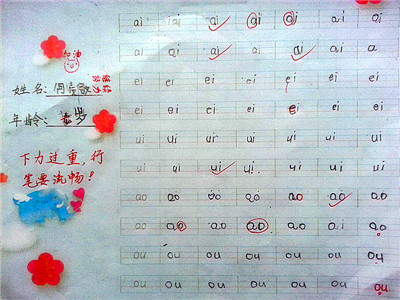 加油
姓名:
年龄:
下力过重,行
笔要流畅!
ai ai ai ai ai ai ai
ai ai ai ai ai ai a
ei ei ei ei ei ei ei
ei ei ei ei ei ei ei
ui ui ui ui ui ui ui
ui ui ui ui ui ui ui
ao ao ao ao ao ao ao
ao ao ao ao ao ao ao
ou ou ou ou ou ou ou
ou ou ou ou ou ou ou